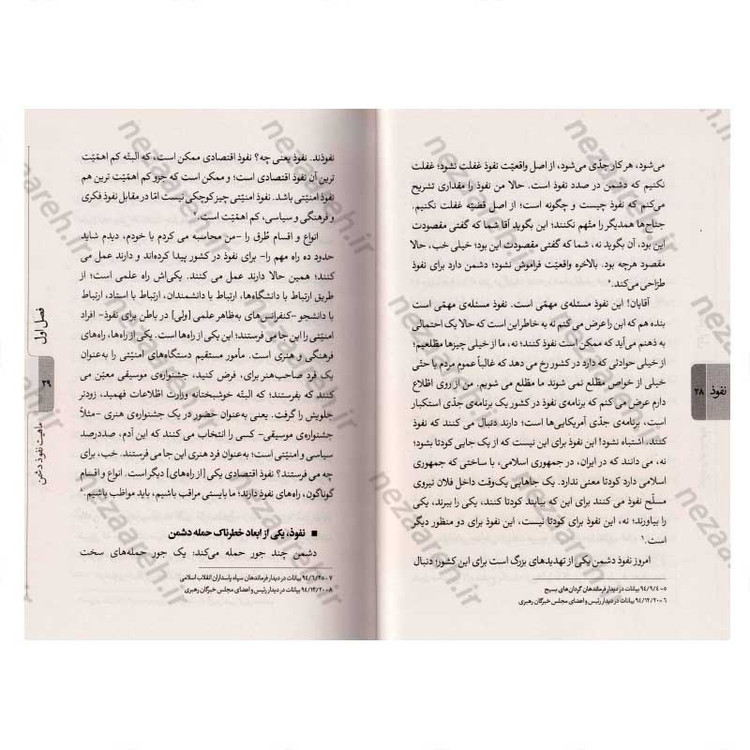 می‌شود، هر کار جدّی می‌شود، از اصل واقعیّت نفوذ غفلت نشود؛ غفلت
نکنیم که دشمن در صدد نفوذ است. حالا من نفوذ را مقداری تشریح
می‌کنم که نفوذ چیست و چگونه است؛ از اصل قضیّه غفلت نکنیم.
جناح‌ها همدیگر را متّهم نکنند؛ این بگوید آقا شما که گفتی مقصودت
این بود، آن بگوید نه، شما که گفتی مقصودت این بود؛ خیلی خب، حالا
مقصود هرچه بود. بالاخره واقعیّت فراموش نشود؛ دشمن دارد برای نفوذ
طرّاحی می‌کند.
آقایان! این نفوذ مسئله‌ی مهمّی است. نفوذ مسئله‌ی مهمّی است
بنده هم که این را عرض می‌کنم نه به خاطر این است که یک احتمالی
به ذهنم می‌آید که ممکن است نفوذ کنند؛ نه، ما از خیلی چیزها مطّلعیم؛
از خیلی حوادثی که دارد در کشور رخ می دهد که غالباً عموم مردم یا حتّی
خیلی از خواص مطّلع نمی شوند ما مطلع می شویم. من از روی اطّلاع
دارم عرض می کنم که برنامه‌ی نفوذ در کشور یک برنامه‌ی جدّی استکبار
است، برنامه‌ی جدّی آمریکایی‌ها است؛ دارند دنبال می کنند که نفوذ
کنند. اشتباه نشود! این نفوذ برای این نیست که از یک جایی کودتا بشود؛
نه، می دانند که در ایران، در جمهوری اسلامی، با ساختی که جمهوری
اسلامی دارد کودتا معنی ندارد. یک جاهایی یک‌وقت داخل فلان نیروی
مسلّح نفوذ می کنند برای این که بیایند کودتا کنند، یکی را ببرند، یکی
را بیاورند؛ نه، این نفوذ برای کودتا نیست، این نفوذ برای دو منظور دیگر
است.
امروز نفوذ دشمن یکی از تهدیدهای بزرگ است برای این کشور؛ دنبال
۵- ۹۴/۹/۴ بیانات در دیدار فرماندهان گردان‌های بسیج
۶- ۹۴/۱۲/۲۰ بیانات در دیدار رئیس و اعضای مجلس خبرگان رهبری
نفوذ
۲۸
نفوذند. نفوذ یعنی چه؟ نفوذ اقتصادی ممکن است، که البتّه کم اهمّیّت
ترین آن نفوذ اقتصادی است؛ و ممکن است که جزو کم اهمّیّت ترین هم
نفوذ امنیّتی باشد. نفوذ امنیّتی چیز کوچکی نیست امّا در مقابل نفوذ فکری
و فرهنگی و سیاسی، کم اهمّیّت است.
انواع و اقسام طُرق را -من محاسبه می کردم با خودم، دیدم شاید
حدود ده راه مهم را- برای نفوذ در کشور پیدا کرده‌اند و دارند عمل می
کنند؛ همین حالا دارند عمل می کنند. یکی‌اش راه علمی است؛ از
طریق ارتباط با دانشگاه‌ها، ارتباط با دانشمندان، ارتباط با استاد، ارتباط
با دانشجو -کنفرانس های به‌ظاهر علمی [ولی] در باطن برای نفوذ- افراد
امنیّتی را این جا می فرستند؛ این یکی از راه‌ها است. یکی از راه‌ها، راه‌های
فرهنگی و هنری است. مأمور مستقیم دستگاه‌های امنیّتی را به‌عنوان
یک فرد صاحب‌هنر برای، فرض کنید، جشنواره‌ی موسیقی معیّن می
کنند که بفرستند؛ که البتّه خوشبختانه وزارت اطّلاعات فهمید، زودتر
جلویش را گرفت. یعنی به‌عنوان حضور در یک جشنواره‌ی هنری -مثلاً
جشنواره‌ی موسیقی- کسی را انتخاب می کنند که این آدم، صددرصد
سیاسی و امنیّتی است؛ به‌عنوان فرد هنری این جا می فرستند. خب، برای
چه می فرستند؟ نفوذ اقتصادی یکی [از راه‌های] دیگر است. انواع و اقسام
گوناگون، راه‌های نفوذ دارند؛ ما بایستی مراقب باشیم، باید مواظب باشیم.
■ نفوذ، یکی از ابعاد خطرناک حمله دشمن
دشمن چند جور حمله می‌کند: یک جور حمله‌های سخت
۷- ۹۴/۶/۲۵ بیانات در دیدار فرماندهان سپاه پاسداران انقلاب اسلامی
۸- ۹۴/۱۲/۲۰ بیانات در دیدار رئیس و اعضای مجلس خبرگان رهبری
فصل اول
۲۹
ماهیت نفوذ دشمن
nezaareh.ir